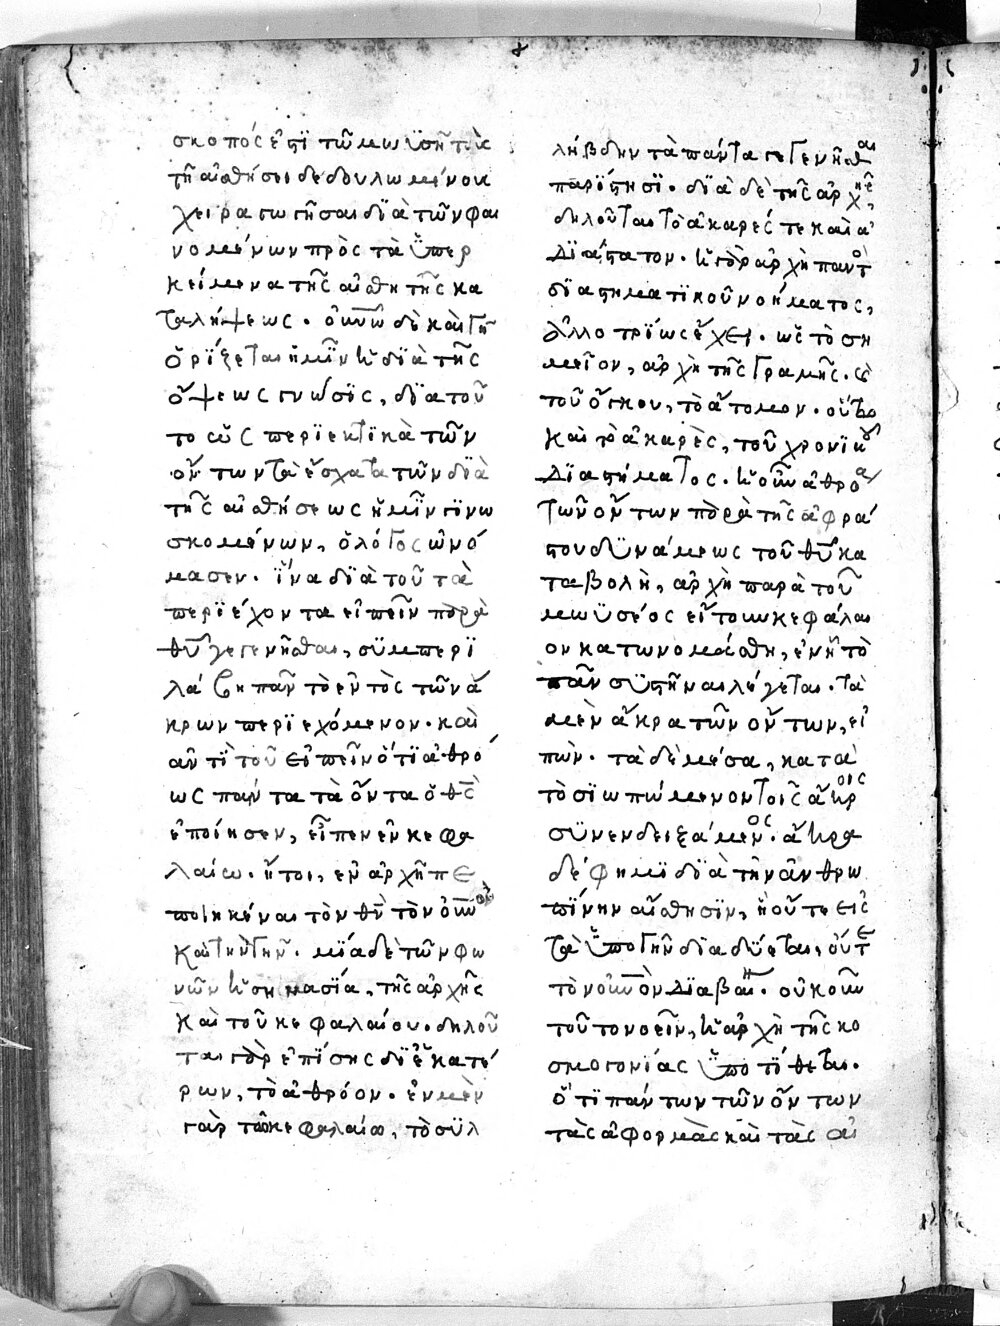 σκοπὸς ἐστὶ τῶ μωϋσῆ τοὺς
τῆ αἰσθήσει δεδουλωμένους
χειραγωγῆσαι διὰ τῶν φαι
νομένων πρὸς τὰ ὑπερ
κείμενα τῆς αἰσθητῆς κα
ταλήψεως. οὐνῶ δὲ καὶ γῆ
ὁρίζεται ἡμῖν ἡ διὰ τῆς
ὄψεως γνῶσις, διατοῦ
το ὡς περιεκτικὰ τῶν
ὄντων τὰ ἔσχατα τῶν διὰ
τῆς αἰσθήσεως ἡμῖν γινω
σκομένων, ὁ λόγος ὠνό
μασεν. ἵνα διὰ τοῦ τὰ
περιέχοντα εἰπεῖν παρὰ
θυ γεγενῆσθαι, συμπερι
λάβη πᾶν τὸ ἐντὸς τῶν ἄ
κρων περιεχόμενον. καὶ
ἀντὶ τοῦ εἰπεῖν ὅτι ἀθρό
ως πάντα τὰ ὄντα ὁ θς
ἐποίησεν, εἶπεν ἐν κεφα
λαίω. ἤτοι, ἐν ἀρχῆ πε
ποιηκέναι τὸν θν τὸν οὐνον
καὶ τὴν γῆν. μία δὲ τῶν φω
νῶν ἡ σημασία, τῆς ἀρχῆς
καὶ τοῦ κεφαλαίου. δηλοῦ
ται γὰρ ἐπίσης δι ἑκατέ
ρων, τὸ ἀθρόον. ἐν μὲν
γὰρ τῶ κεφαλαίω, τὸ συλ
λήβδην τὰ πάντα γεγενῆσθαι
παρίστησι. διὰ δὲ τῆς ἀρχῆς,
δηλοῦται τὸ ἀκαρές τε καὶ ἀ
διάστατον. ἡ γὰρ ἀρχὴ παντὸς
διαστηματικοῦ νοήματος,
ἀλλοτρίως ἔχει. ὡς τὸ ση
μεῖον, ἀρχὴ τῆς γραμῆς. καὶ
τοῦ ὄγκου, τὸ ἄτομον. οὕτω
καὶ τὸ ἀκαρὲς, τοῦ χρονικοῦ
διαστήματος. ἡ οὖν ἀθρόα
τῶν ὄντων παρὰ τῆς ἀφρά
στου δυνάμεως τοῦ θυ κα
ταβολὴ, ἀρχὴ παρὰ τοῦ
μωϋσέος εἴτουν κεφάλαι
ον κατωνομάσθη, ἐν ἧ τὸ
πᾶν συστῆναι λέγεται. τὰ
μὲν ἄκρα τῶν ὄντων, εἰ
πὼν. τὰ δὲ μέσα, κατὰ
τὸ σιωπώμενον τοῖς ἄκροις
συνενδειξάμενος. ἄκρα
δέ φημι διὰ τὴν ἀνθρω
πίνην αἴσθησιν, ἣ οὔτε εἰς
τὰ ὑπὸ γῆν διαδύεται, οὔτε
τὸν οὐνὸν διαβαίνει. οὐκοῦν
τοῦτο νοεῖν, ἡ ἀρχὴ τῆς κο
σμογονίας ὑποτίθεται.
ὅτι πάντων τῶν ὄντων
τὰς ἀφορμὰς καὶ τὰς αἰ